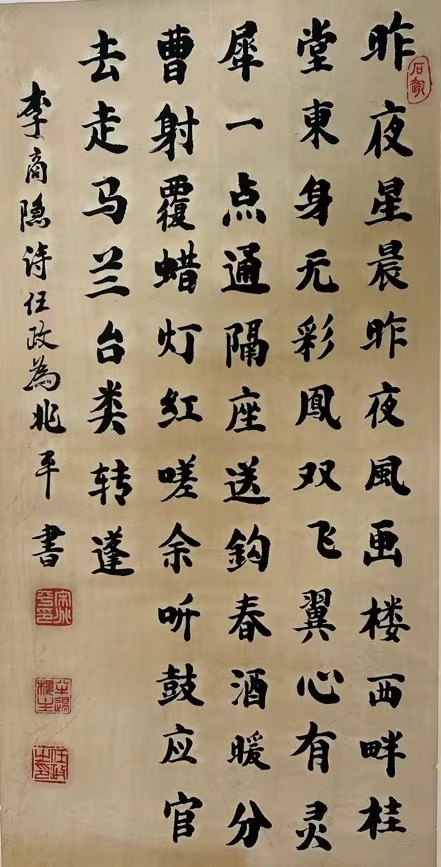 昨夜星晨昨夜風画楼西畔桂
堂東身无彩鳳双飞翼心有灵
犀一点通隔座送鈎春酒暖分
曹射覆蜡灯红嗟余听鼓应官
去走马兰台类转蓬
李商隐诗任政為兆平書